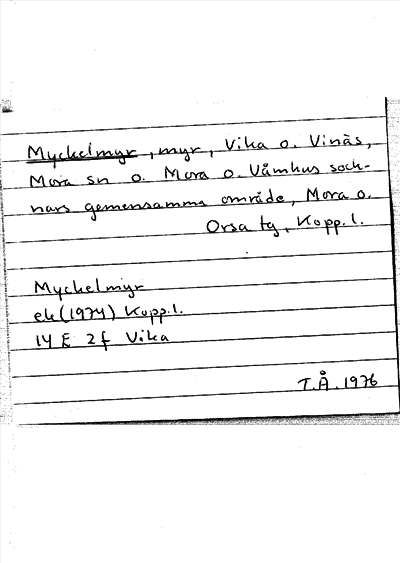 Myckelmyr, myr, Vika o. Vinäs,
Mora sn o. Mora o. Våmhus sock-
nars gemensamma område, Mora o.
Orsa tg, Kopp. l.
Myckelmyr
ek (1974) Kopp. l.
14 E 2 f Vika
T.Å. 1976